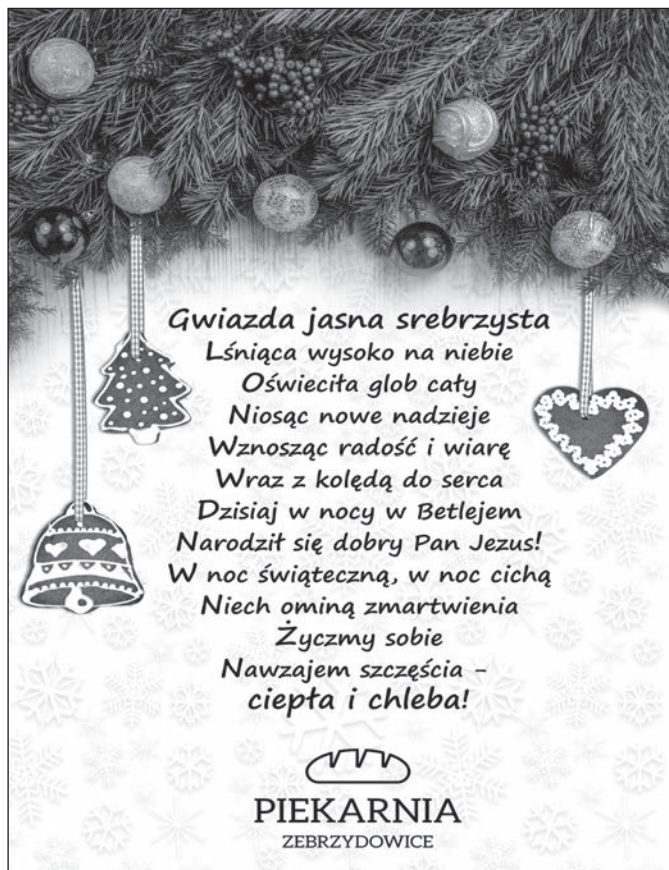 Gwiazda jasna srebrzysta
Lśniąca wysoko na niebie
Oświeciła glob cały
Niosąc nowe nadzieje
Wznosząc radość i wiarę
Wraz z kolędą do serca
Dzisiaj w nocy w Betlejem
Narodził się dobry Pan Jezus!
W noc świąteczną, w noc cichą
Niech ominą zmartwienia
Życzmy sobie
Nawzajem szczęścia -
ciepła i chleba!
PIEKARNIA
ZEBRZYDOWICE